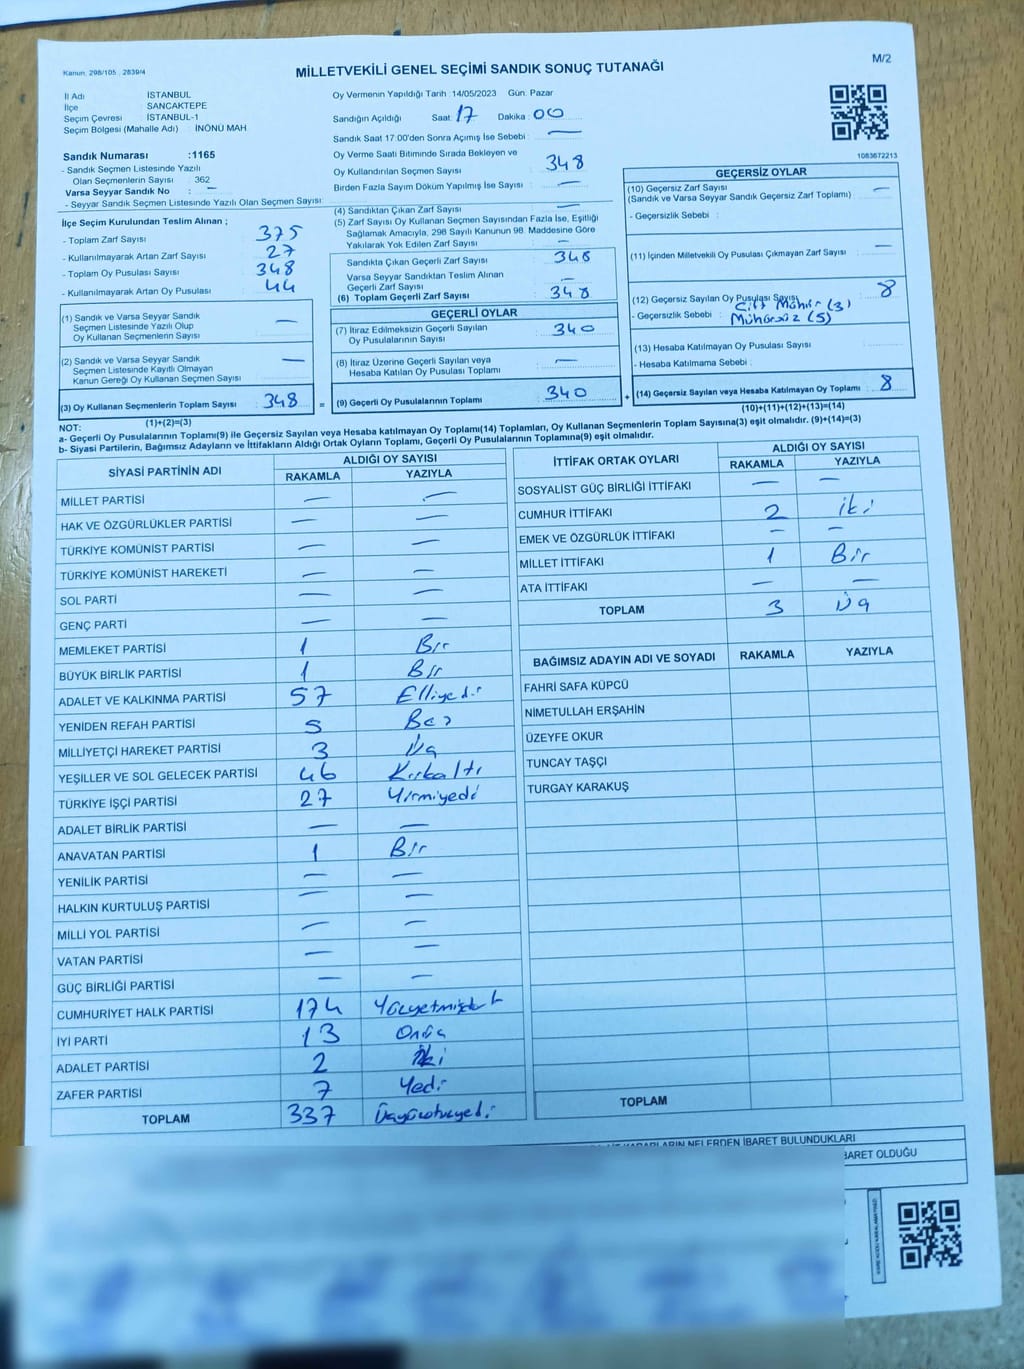 Kanun, 298/105 , 2839/4
M/2
MİLLETVEKİLİ GENEL SEÇİMİ SANDIK SONUÇ TUTANAĞI
İl Adı : İSTANBUL
İlçe : SANCAKTEPE
Seçim Çevresi : İSTANBUL-1
Seçim Bölgesi (Mahalle Adı) : İNÖNÜ MAH
Sandık Numarası :1165
- Sandık Seçmen Listesinde Yazılı
Olan Seçmenlerin Sayısı : 362
Varsa Seyyar Sandık No : —
- Seyyar Sandık Seçmen Listesinde Yazılı Olan Seçmen Sayısı:
Oy Vermenin Yapıldığı Tarih :14/05/2023 Gün: Pazar
Sandığın Açıldığı Saat : 17 Dakika : 00
Sandık Saat 17:00'den Sonra Açımış İse Sebebi : —
Oy Verme Saati Bitiminde Sırada Bekleyen ve
Oy Kullandırılan Seçmen Sayısı : 348
Birden Fazla Sayım Döküm Yapılmış İse Sayısı : —
1083672213
İlçe Seçim Kurulundan Teslim Alınan ;
- Toplam Zarf Sayısı : 375
- Kullanılmayarak Artan Zarf Sayısı : 27
- Toplam Oy Pusulası Sayısı : 348
- Kullanılmayarak Artan Oy Pusulası : 44
(1) Sandık ve Varsa Seyyar Sandık
Seçmen Listesinde Yazılı Olup
Oy Kullanan Seçmenlerin Sayısı : —
(2) Sandık ve Varsa Seyyar Sandık
Seçmen Listesinde Kayıtlı Olmayan
Kanun Gereği Oy Kullanan Seçmen Sayısı : —
(3) Oy Kullanan Seçmenlerin Toplam Sayısı : 348 =
(1)+(2)=(3)
(4) Sandıktan Çıkan Zarf Sayısı : —
(5) Zarf Sayısı Oy Kullanan Seçmen Sayısından Fazla İse, Eşitliği
Sağlamak Amacıyla, 298 Sayılı Kanunun 98. Maddesine Göre
Yakılarak Yok Edilen Zarf Sayısı : —
Sandıkta Çıkan Geçerli Zarf Sayısı : 348
Varsa Seyyar Sandıktan Teslim Alınan
Geçerli Zarf Sayısı : —
(6) Toplam Geçerli Zarf Sayısı : 348
GEÇERLİ OYLAR
(7) İtiraz Edilmeksizin Geçerli Sayılan
Oy Pusulalarının Sayısı : 340
(8) İtiraz Üzerine Geçerli Sayılan veya
Hesaba Katılan Oy Pusulası Toplamı : —
(9) Geçerli Oy Pusulalarının Toplamı : 340 +
GEÇERSİZ OYLAR
(10) Geçersiz Zarf Sayısı : —
(Sandık ve Varsa Seyyar Sandık Geçersiz Zarf Toplamı)
- Geçersizlik Sebebi :
(11) İçinden Milletvekili Oy Pusulası Çıkmayan Zarf Sayısı : —
(12) Geçersiz Sayılan Oy Pusulası Sayısı : 8
- Geçersizlik Sebebi : Çift Mühür (3)
Mühürsüz (5)
(13) Hesaba Katılmayan Oy Pusulası Sayısı :
- Hesaba Katılmama Sebebi :
(14) Geçersiz Sayılan veya Hesaba Katılmayan Oy Toplamı : 8
(10)+(11)+(12)+(13)=(14)
NOT:
a- Geçerli Oy Pusulalarının Toplamı(9) ile Geçersiz Sayılan veya Hesaba katılmayan Oy Toplamı(14) Toplamları, Oy Kullanan Seçmenlerin Toplam Sayısına(3) eşit olmalıdır. (9)+(14)=(3)
b- Siyasi Partilerin, Bağımsız Adayların ve İttifakların Aldığı Ortak Oyların Toplamı, Geçerli Oy Pusulalarının Toplamına(9) eşit olmalıdır.
SİYASİ PARTİNİN ADI ALDIĞI OY SAYISI
RAKAMLA YAZIYLA
MİLLET PARTİSİ — —
HAK VE ÖZGÜRLÜKLER PARTİSİ — —
TÜRKİYE KOMÜNİST PARTİSİ — —
TÜRKİYE KOMÜNİST HAREKETİ — —
SOL PARTİ — —
GENÇ PARTİ — —
MEMLEKET PARTİSİ 1 Bir
BÜYÜK BİRLİK PARTİSİ 1 Bir
ADALET VE KALKINMA PARTİSİ 57 Elliyedi
YENİDEN REFAH PARTİSİ 5 Beş
MİLLİYETÇİ HAREKET PARTİSİ 3 Üç
YEŞİLLER VE SOL GELECEK PARTİSİ 46 Kırkaltı
TÜRKİYE İŞÇİ PARTİSİ 27 Yirmiyedi
ADALET BİRLİK PARTİSİ — —
ANAVATAN PARTİSİ 1 Bir
YENİLİK PARTİSİ — —
HALKIN KURTULUŞ PARTİSİ — —
MİLLİ YOL PARTİSİ — —
VATAN PARTİSİ — —
GÜÇ BİRLİĞİ PARTİSİ — —
CUMHURİYET HALK PARTİSİ 174 Yüzyetmişdört
İYİ PARTİ 13 Onüç
ADALET PARTİSİ 2 İki
ZAFER PARTİSİ 7 Yedi
TOPLAM 337 Üçyüzotuzyedi
İTTİFAK ORTAK OYLARI ALDIĞI OY SAYISI
RAKAMLA YAZIYLA
SOSYALİST GÜÇ BİRLİĞİ İTTİFAKI — —
CUMHUR İTTİFAKI 2 iki
EMEK VE ÖZGÜRLÜK İTTİFAKI — —
MİLLET İTTİFAKI 1 Bir
ATA İTTİFAKI — —
TOPLAM 3 Üç
BAĞIMSIZ ADAYIN ADI VE SOYADI RAKAMLA YAZIYLA
FAHRİ SAFA KÜPCÜ
NİMETULLAH ERŞAHİN
ÜZEYFE OKUR
TUNCAY TAŞÇI
TURGAY KARAKUŞ
TOPLAM
KARARLARIN NELERDEN İBARET BULUNDUKLARI
İBARET OLDUĞU